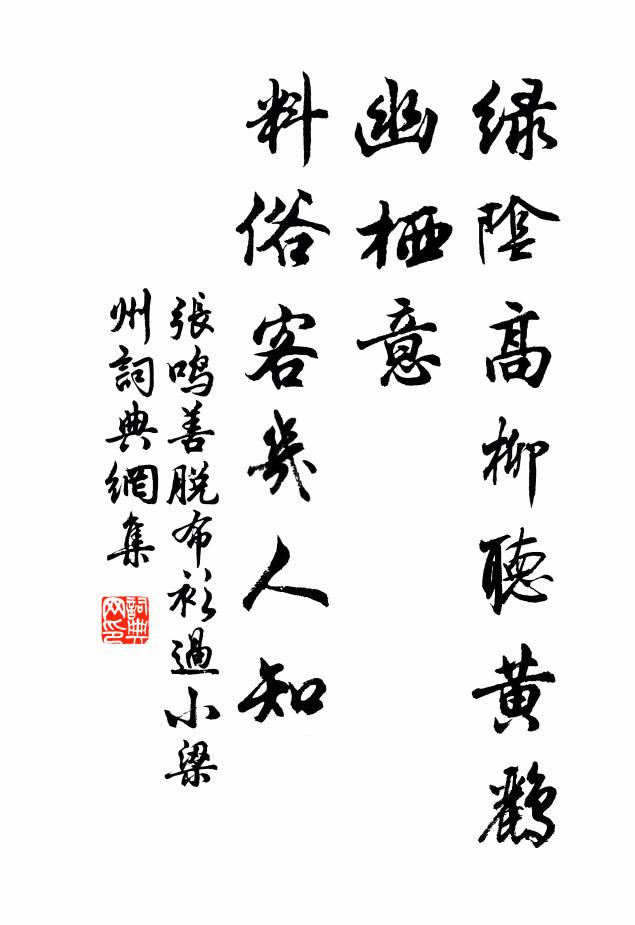 绿陰高柳聽黄鸝
幽栖意
料俗客幾人知
張鳴善脱布衫過小梁
州詞典網集
詞典网印